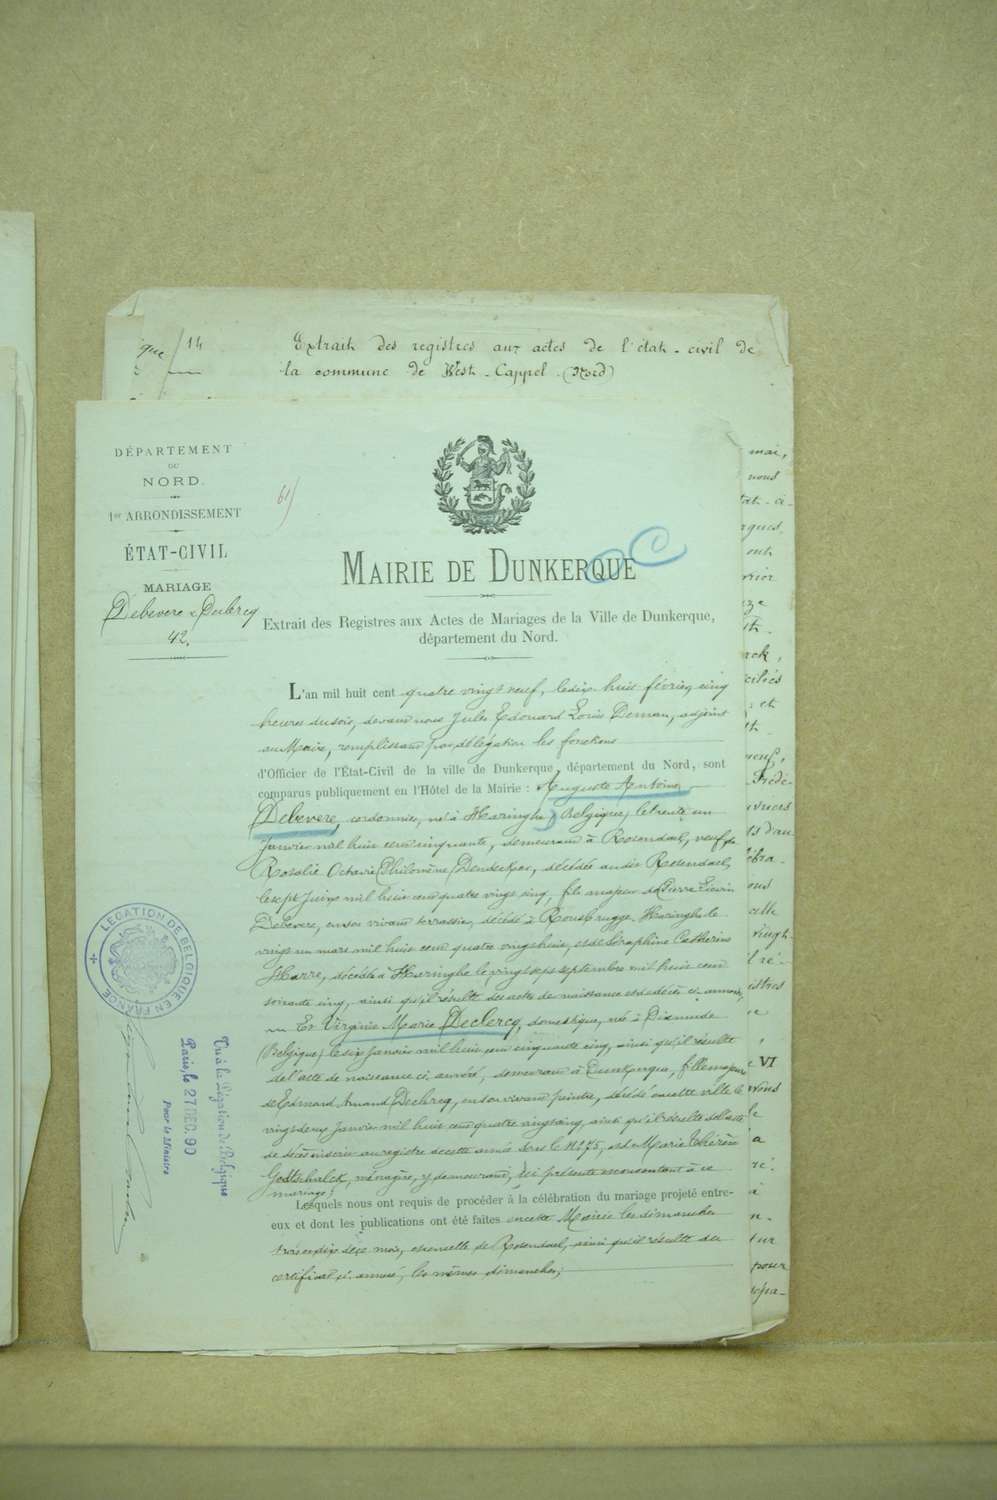 14
Extrait des registres aux actes de l'état-civil de
la commune de West-Cappel (Nord)
DÉPARTEMENT
DU
NORD.
1er ARRONDISSEMENT
ÉTAT-CIVIL
MARIAGE
Debevere & Declercq
42.
61
MAIRIE DE DUNKERQUE
Extrait des Registres aux Actes de Mariages de la Ville de Dunkerque,
département du Nord.
L'an mil huit cent quatre vingt neuf, le dix huit février, cinq
heures du soir, devant nous Jules Edouard Louis Deman, adjoint
au Maire, remplissant par délégation les fonctions
d'Officier de l'État-Civil de la ville de Dunkerque, département du Nord, sont
comparus publiquement en l'Hôtel de la Mairie : Auguste Antoine
Debevere, cordonnier, né à Haringhe (Belgique) le trente un
Janvier mil huit cent cinquante, demeurant à Rosendael, veuf de
Rosalie Octavie Philomène Dendecker, décédée au dit Rosendael,
le sept Juin mil huit cent quatre vingt cinq, fils majeur de Pierre
Debevere, en son vivant terrassier, décédé à Rousbrugge-Haringhe le
vingt un mars mil huit cent quatre vingt huit, et de Séraphine Catherine
Harre, décédée à Haringhe le vingt sept septembre mil huit cent
soixante cinq, ainsi qu'il résulte des actes de naissance et de décès ci-annexés,
Et Virginie Marie Declercq, domestique, née à Dixmude
(Belgique) le six Janvier mil huit cent cinquante cinq, ainsi qu'il résulte
de l'acte de naissance ci-annexé, demeurant à Dunkerque, fille majeure
de Edmond Amand Declercq, en son vivant peintre, décédé en cette ville le
vingt deux Janvier mil huit cent quatre vingt cinq, ainsi qu'il résulte de l'acte
de décès inscrit au registre de cette année sous le N° 75, et de Marie Thérèse
Godtschalck, ménagère, y demeurant, ici présente et consentant à ce
mariage;
Lesquels nous ont requis de procéder à la célébration du mariage projeté entre-
eux et dont les publications ont été faites en cette Mairie les dimanches
trois et dix de ce mois, et en celle de Rosendael, ainsi qu'il résulte du
certificat ci-annexé, les mêmes dimanches;
LÉGATION DE BELGIQUE EN FRANCE
Vu à la Légation de Belgique
Paris, le 27 DEC. 90
Pour le Ministre
mai,
nous
ont
VI